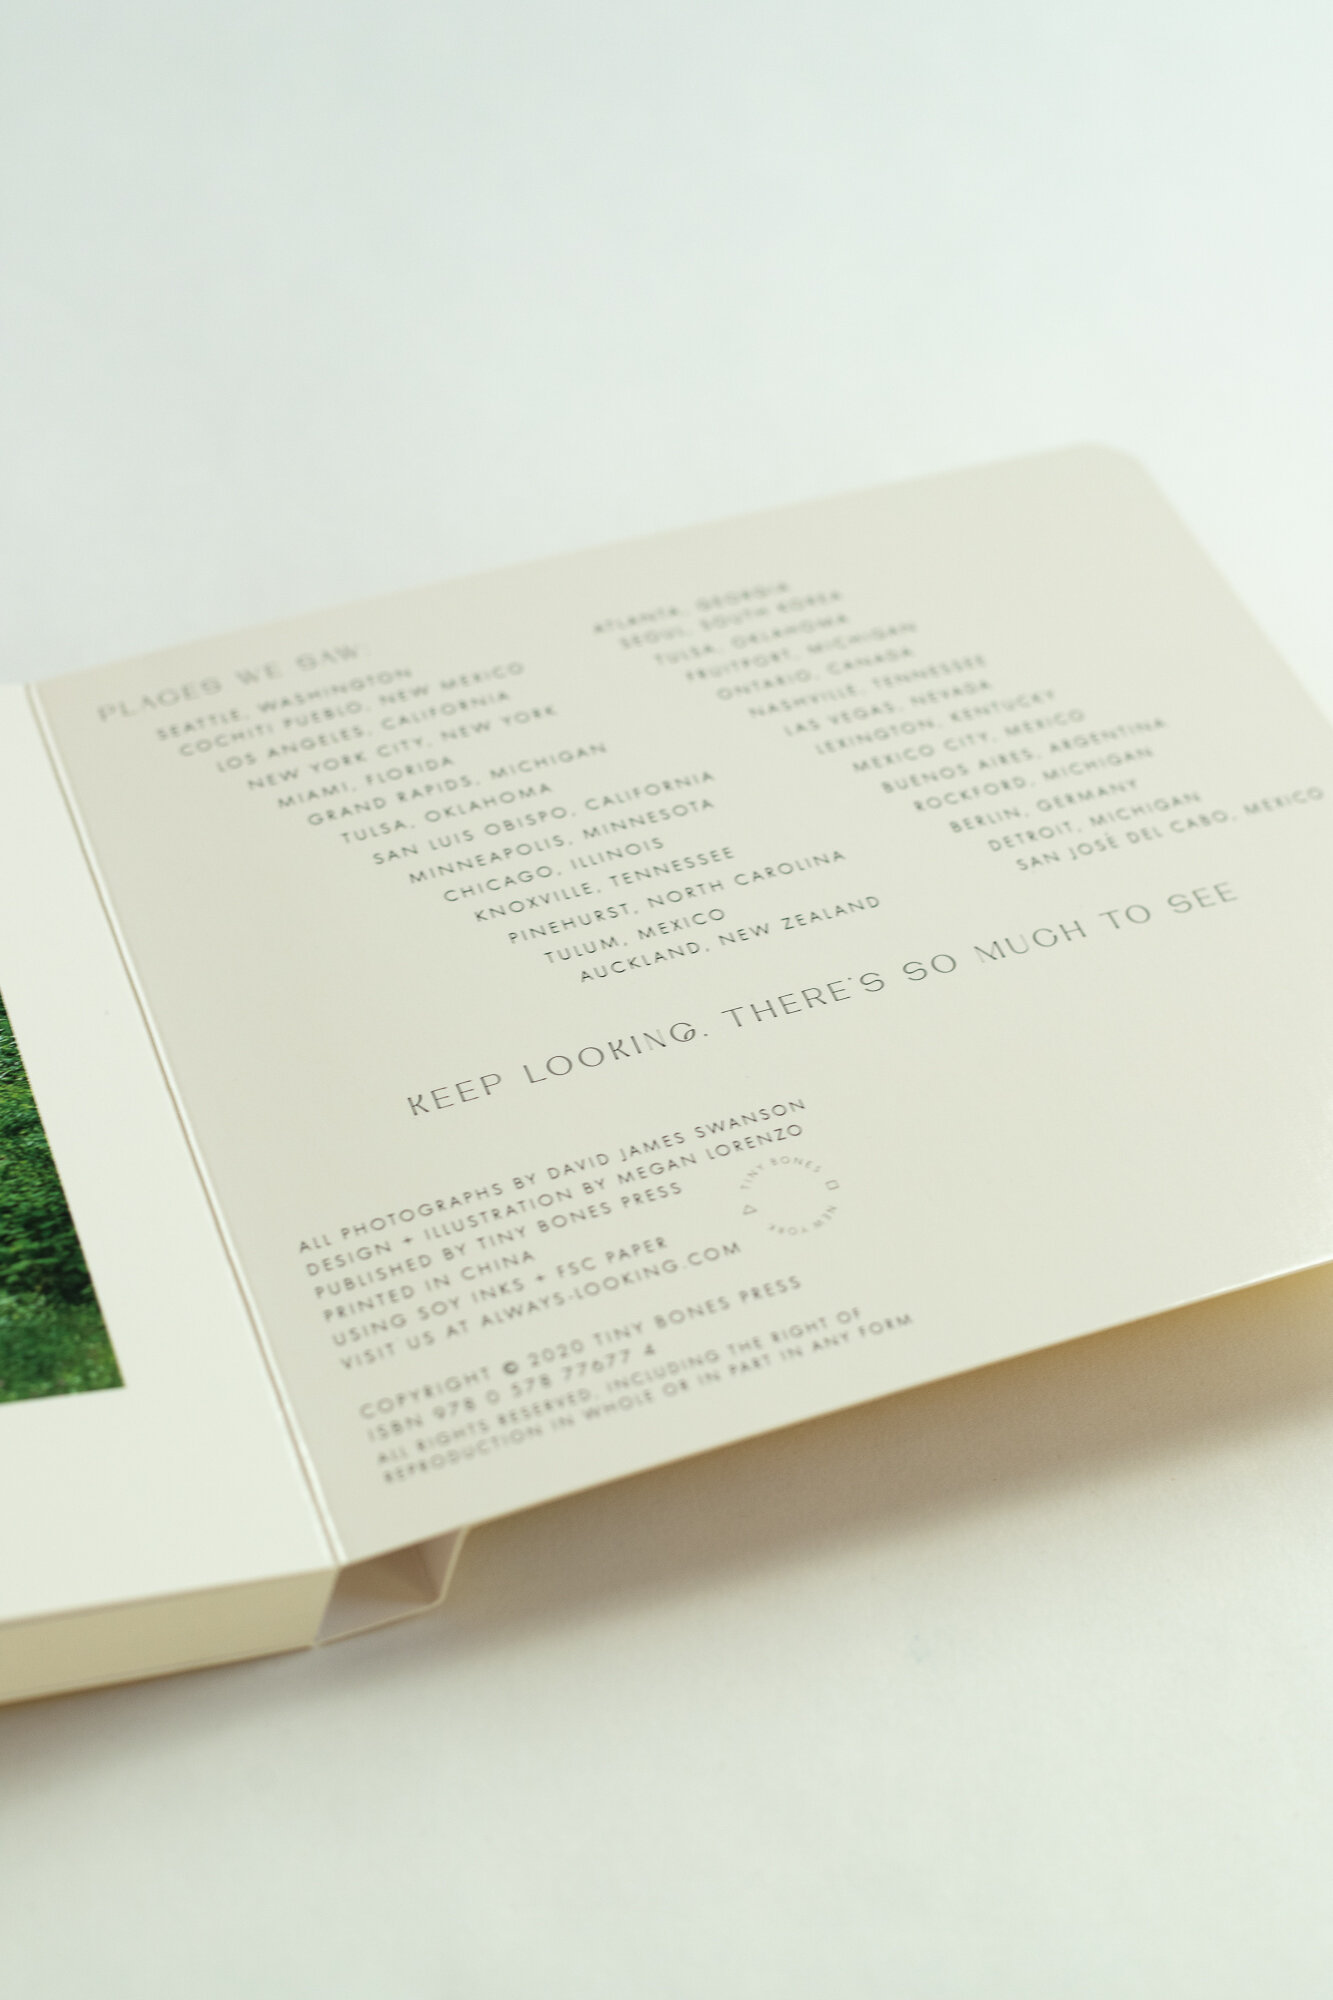 PLACES WE SAW:
SEATTLE, WASHINGTON
COCHITI PUEBLO, NEW MEXICO
LOS ANGELES, CALIFORNIA
NEW YORK CITY, NEW YORK
MIAMI, FLORIDA
GRAND RAPIDS, MICHIGAN
TULSA, OKLAHOMA
SAN LUIS OBISPO, CALIFORNIA
MINNEAPOLIS, MINNESOTA
CHICAGO, ILLINOIS
KNOXVILLE, TENNESSEE
PINEHURST, NORTH CAROLINA
TULUM, MEXICO
AUCKLAND, NEW ZEALAND
ATLANTA, GEORGIA
SEOUL, SOUTH KOREA
TULSA, OKLAHOMA
FRUITPORT, MICHIGAN
ONTARIO, CANADA
NASHVILLE, TENNESSEE
LAS VEGAS, NEVADA
LEXINGTON, KENTUCKY
MEXICO CITY, MEXICO
BUENOS AIRES, ARGENTINA
ROCKFORD, MICHIGAN
BERLIN, GERMANY
DETROIT, MICHIGAN
SAN JOSÉ DEL CABO, MEXICO
KEEP LOOKING. THERE'S SO MUCH TO SEE
ALL PHOTOGRAPHS BY DAVID JAMES SWANSON
DESIGN + ILLUSTRATION BY MEGAN LORENZO
PUBLISHED BY TINY BONES PRESS
PRINTED IN CHINA
USING SOY INKS + FSC PAPER
VISIT US AT ALWAYS-LOOKING.COM
TINY BONES
NEW YORK
COPYRIGHT © 2020 TINY BONES PRESS
ISBN 978 0 578 77677 4
ALL RIGHTS RESERVED, INCLUDING THE RIGHT OF
REPRODUCTION IN WHOLE OR IN PART IN ANY FORM